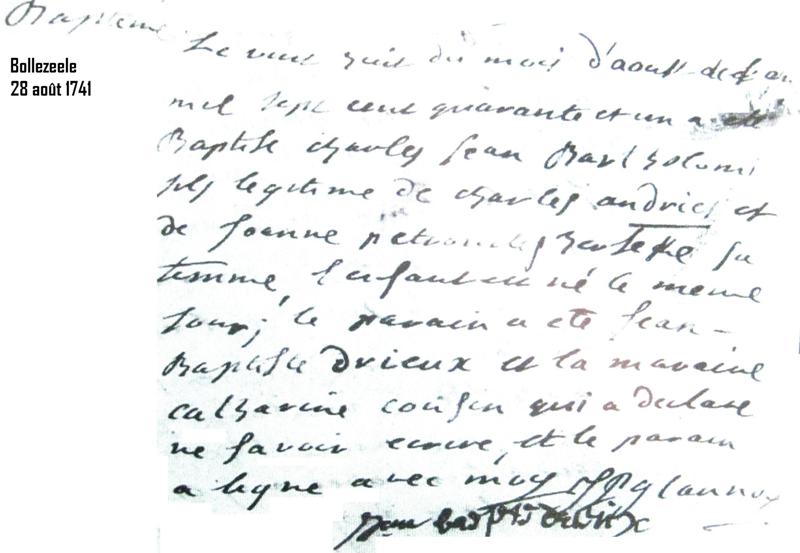 Baptême
Bollezeele
28 août 1741
Le vint huit du mois d'aoust de l'an
mil sept cent quarante et un a été
Baptisé charles jean Bartholomi
fils legitime de charles andries et
de joanne petronelle sa
femme, l'enfant est né le meme
jour; le parain a eté jean-
Baptiste Drieux et la maraine
catharine cousin qui a declaré
ne savoir ecrire, et le parain
a signé avec moy
jean baptiste drieux